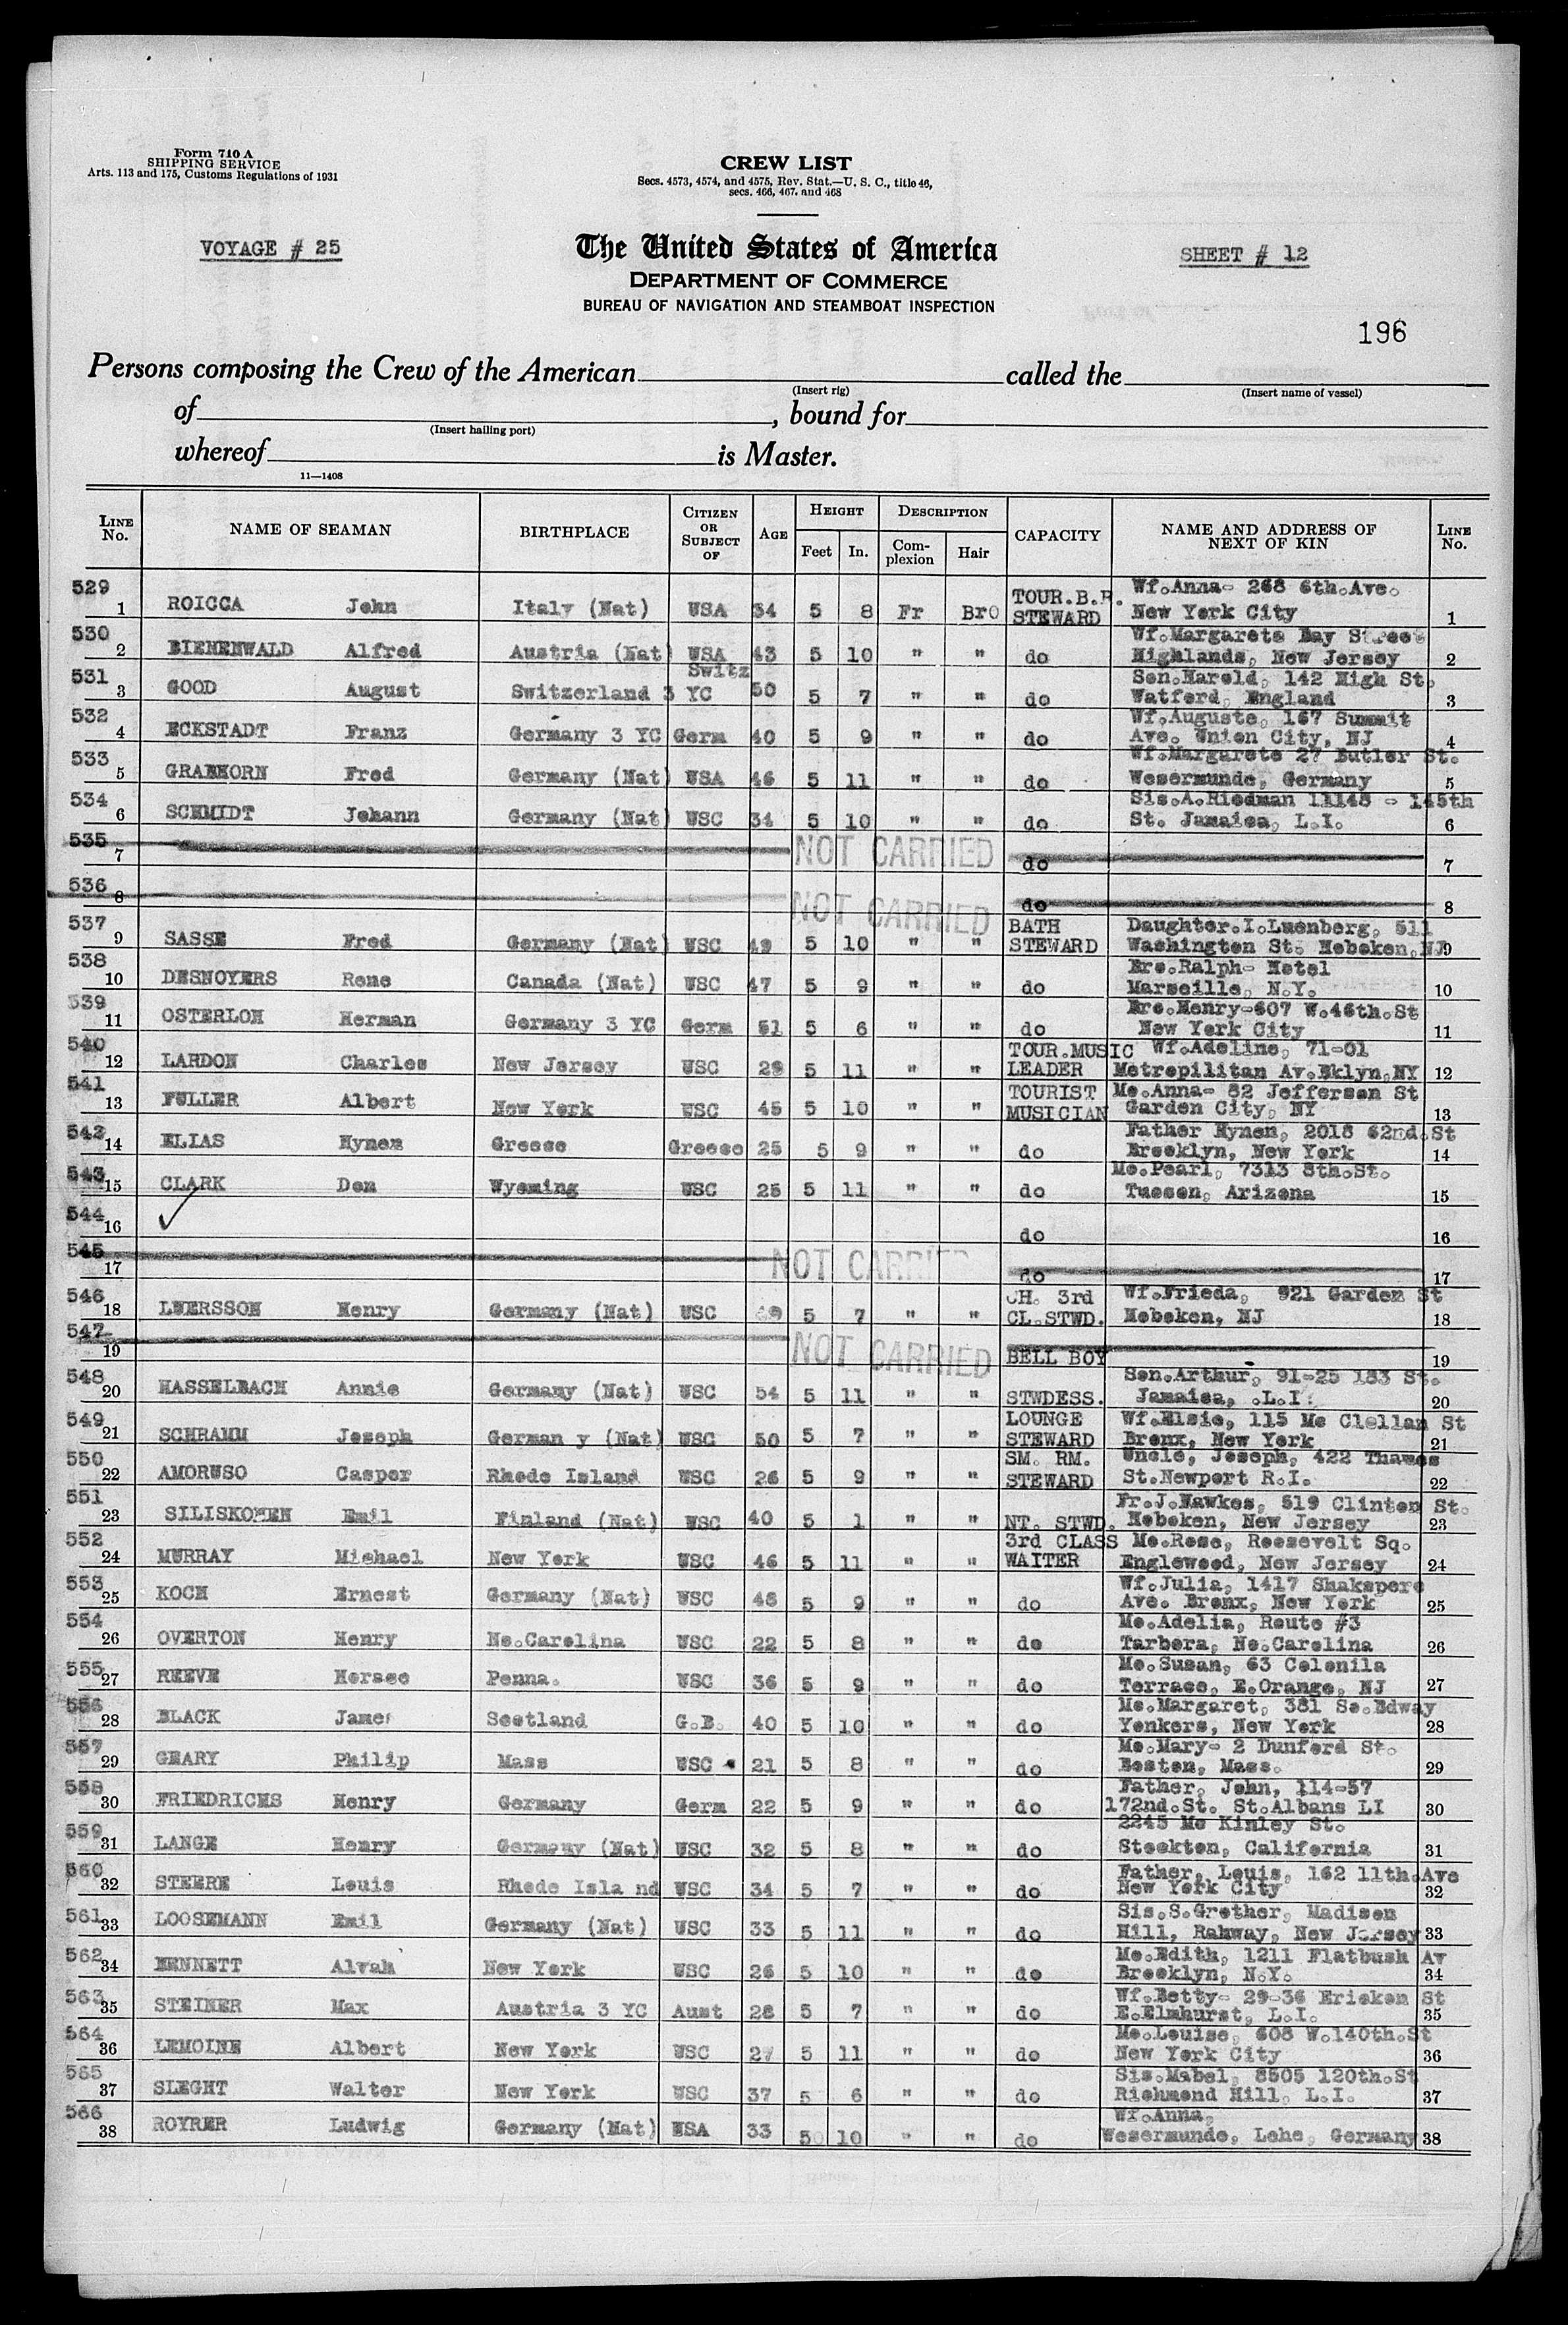 Form 710 A
SHIPPING SERVICE
Arts. 113 and 175, Customs Regulations of 1931
CREW LIST
Secs. 4573, 4574, and 4575, Rev. Stat.—U. S. C., title 46,
secs. 466, 467, and 468
VOYAGE # 25
The United States of America
SHEET # 12
DEPARTMENT OF COMMERCE
BUREAU OF NAVIGATION AND STEAMBOAT INSPECTION
196
Persons composing the Crew of the American called the
(Insert rig) (Insert name of vessel)
of , bound for
(Insert hailing port)
whereof is Master.
11—1408
LINE No. NAME OF SEAMAN BIRTHPLACE CITIZEN OR SUBJECT OF AGE HEIGHT Feet In. DESCRIPTION Complexion Hair CAPACITY NAME AND ADDRESS OF NEXT OF KIN LINE No.
529 1 ROICCA John Italy (Nat) USA 34 5 8 Fr Bro TOUR.B.R. STEWARD Wf.Anna- 268 6th.Ave. New York City 1
530 2 BIENENWALD Alfred Austria (Nat) USA 43 5 10 " " do Wf.Margarete Bay Street Highlands, New Jersey 2
531 3 GOOD August Switzerland 3 YC Switz 50 5 7 " " do Son.Harold, 142 High St, Watford, England 3
532 4 ECKSTADT Franz Germany 3 YC Germ 40 5 9 " " do Wf.Auguste, 167 Summit Ave. Union City, NJ 4
533 5 GRABHORN Fred Germany (Nat) USA 46 5 11 " " do Wf.Margarete 27 Butler St. Wesermunde, Germany 5
534 6 SCHMIDT Johann Germany (Nat) USC 34 5 10 " " do Sis.A.Riedman 11148 - 145th St. Jamaica, L.I. 6
535 7 NOT CARRIED do 7
536 8 NOT CARRIED do 8
537 9 SASSE Fred Germany (Nat) USC 49 5 10 " " BATH STEWARD Daughter.I.Luenberg, 511 Washington St. Hoboken,NJ 9
538 10 DESNOYERS Rene Canada (Nat) USC 47 5 9 " " do Bro.Ralph- Hotel Marseille, N.Y. 10
539 11 OSTERLOH Herman Germany 3 YC Germ 51 5 6 " " do Bro.Henry-607 W.46th.St New York City 11
540 12 LARDON Charles New Jersey USC 29 5 11 " " TOUR.MUSIC LEADER Wf.Adeline, 71-01 Metropilitan Av.Bklyn.NY 12
541 13 FULLER Albert New York USC 45 5 10 " " TOURIST MUSICIAN Mo.Anna- 82 Jefferson St Garden City, NY 13
542 14 ELIAS Hynem Greese Greese 25 5 9 " " do Father Hynen, 2018 62nd.St Brooklyn, New York 14
543 15 CLARK Don Wyoming USC 25 5 11 " " do Mo.Pearl, 7313 8th.St. Tucson, Arizona 15
544 16 do 16
545 17 NOT CARRIED do 17
546 18 LUERSSON Henry Germany (Nat) USC 5 7 " " CH. 3rd CL.STWD. Wf.Frieda, 921 Garden St Hoboken, NJ 18
547 19 NOT CARRIED BELL BOY 19
548 20 HASSELBACH Annie Germany (Nat) USC 54 5 11 " " STWDESS. Son.Arthur, 91-25 183 St. Jamaica, .L.I. 20
549 21 SCHRAMM Joseph German y (Nat) USC 50 5 7 " " LOUNGE STEWARD Wf.Elsie, 115 Mc Clellan St Bronx, New York 21
550 22 AMORUSO Casper Rhode Island USC 26 5 9 " " SM. RM. STEWARD Uncle, Joseph, 422 Thames St.Newport R.I. 22
551 23 SILISKOMEN Emil Finland (Nat) USC 40 5 1 " " NT. STWD. Fr.J.Hawkes, 519 Clinton St. Hoboken, New Jersey 23
552 24 MURRAY Michael New York USC 46 5 11 " " 3rd CLASS WAITER Mo.Rose, Roosevelt Sq. Englewood, New Jersey 24
553 25 KOCH Ernest Germany (Nat) USC 48 5 9 " " do Wf.Julia, 1417 Shakspere Ave. Bronx, New York 25
554 26 OVERTON Henry No.Carolina USC 22 5 8 " " do Mo.Adelia, Route #3 Tarbora, No.Carolina 26
555 27 REEVE Horace Penna. USC 36 5 9 " " do Mo.Susan, 63 Colonila Terrace, E.Orange, NJ 27
556 28 BLACK James Scotland G.B. 40 5 10 " " do Mo.Margaret, 381 So.Bdway Yonkers, New York 28
557 29 GEARY Philip Mass USC 21 5 8 " " do Mo.Mary- 2 Dunford St. Boston, Mass. 29
558 30 FRIEDRICHS Henry Germany Germ 22 5 9 " " do Father, John, 114-57 172nd.St. St.Albans LI 30
559 31 LANGE Henry Germany (Nat) USC 32 5 8 " " do 2245 Mc Kinley St. Stockton, California 31
560 32 STEERE Louis Rhode Isla nd USC 34 5 7 " " do Father, Louis, 162 11th.Ave New York City 32
561 33 LOOSEMANN Emil Germany (Nat) USC 33 5 11 " " do Sis.S.Grether, Madison Hill, Rahway, New Jersey 33
562 34 BENNETT Alvah New York USC 26 5 10 " " do Mo.Edith, 1211 Flatbush Av Brooklyn, N.Y. 34
563 35 STEINER Max Austria 3 YC Aust 28 5 7 " " do Wf.Betty- 29-36 Ericken St E.Elmhurst, L.I. 35
564 36 LEMOINE Albert New York USC 27 5 11 " " do Mo.Louise, 608 W.140th.St New York City 36
565 37 SLEGHT Walter New York USC 37 5 6 " " do Sis.Mabel, 8505 120th.St Richmond Hill, L.I. 37
566 38 ROYRER Ludwig Germany (Nat) USA 33 5 10 " " do Wf.Anna, Wesermunde, Lehe, Germany 38